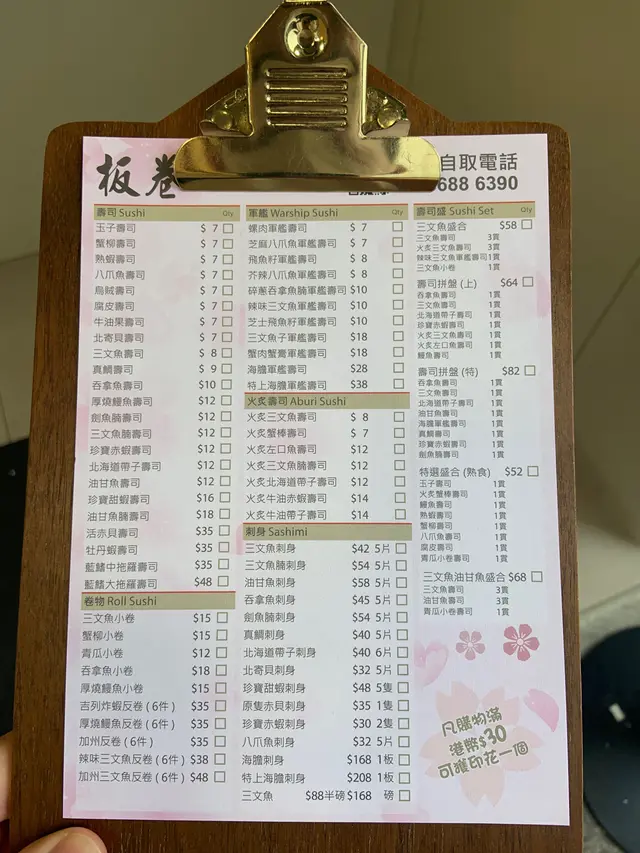 板卷
自取電話
688 6390
壽司 Sushi Qty
玉子壽司 $ 7
蟹柳壽司 $ 7
熟蝦壽司 $ 7
八爪魚壽司 $ 7
烏賊壽司 $ 7
腐皮壽司 $ 7
牛油果壽司 $ 7
北寄貝壽司 $ 7
三文魚壽司 $ 8
真鯛壽司 $ 9
吞拿魚壽司 $10
厚燒鰻魚壽司 $12
劍魚腩壽司 $12
三文魚腩壽司 $12
珍寶赤蝦壽司 $12
北海道帶子壽司 $12
油甘魚壽司 $12
珍寶甜蝦壽司 $16
油甘魚腩壽司 $18
活赤貝壽司 $35
牡丹蝦壽司 $35
藍鰭中拖羅壽司 $35
藍鰭大拖羅壽司 $48
卷物 Roll Sushi
三文魚小卷 $15
蟹柳小卷 $15
青瓜小卷 $12
吞拿魚小卷 $18
厚燒鰻魚小卷 $15
吉列炸蝦反卷 ( 6件 ) $35
厚燒鰻魚反卷 ( 6件 ) $35
加州反卷 ( 6件 ) $35
辣味三文魚反卷 ( 6件 ) $38
加州三文魚反卷 ( 6件 ) $48
軍艦 Warship Sushi Qty
螺肉軍艦壽司 $ 7
芝麻八爪魚軍艦壽司 $ 7
飛魚籽軍艦壽司 $ 8
芥辣八爪魚軍艦壽司 $ 8
碎蔥吞拿魚腩軍艦壽司 $10
辣味三文魚軍艦壽司 $10
芝士飛魚籽軍艦壽司 $10
三文魚子軍艦壽司 $18
蟹肉蟹膏軍艦壽司 $18
海膽軍艦壽司 $28
特上海膽軍艦壽司 $38
火炙壽司 Aburi Sushi
火炙三文魚壽司 $ 8
火炙蟹棒壽司 $ 7
火炙左口魚壽司 $12
火炙三文魚腩壽司 $12
火炙北海道帶子壽司 $12
火炙牛油赤蝦壽司 $14
火炙牛油帶子壽司 $14
刺身 Sashimi
三文魚刺身 $42 5片
三文魚腩刺身 $54 5片
油甘魚刺身 $58 5片
吞拿魚刺身 $45 5片
劍魚腩刺身 $54 5片
真鯛刺身 $40 5片
北海道帶子刺身 $40 6片
北寄貝刺身 $32 5片
珍寶甜蝦刺身 $48 5隻
原隻赤貝刺身 $35 1隻
珍寶赤蝦刺身 $30 2隻
八爪魚刺身 $32 5片
海膽刺身 $168 1板
特上海膽刺身 $208 1板
三文魚 $88半磅 $168 磅
壽司盛 Sushi Set Qty
三文魚盛合 $58
三文魚壽司 3貫
火炙三文魚壽司 3貫
辣味三文魚軍艦壽司 1貫
三文魚小卷 1貫
壽司拼盤 (上) $64
吞拿魚壽司 1貫
三文魚壽司 1貫
北海道帶子壽司 1貫
珍寶赤蝦壽司 1貫
火炙三文魚壽司 1貫
火炙左口魚壽司 1貫
鰻魚壽司 1貫
壽司拼盤 (特) $82
吞拿魚壽司 1貫
三文魚壽司 1貫
北海道帶子壽司 1貫
油甘魚壽司 1貫
海膽軍艦壽司 1貫
真鯛壽司 1貫
珍寶赤蝦壽司 1貫
劍魚腩壽司 1貫
特選盛合 (熟食) $52
玉子壽司 1貫
火炙蟹棒壽司 1貫
鰻魚壽司 1貫
熟蝦壽司 1貫
蟹柳壽司 1貫
八爪魚壽司 1貫
腐皮壽司 1貫
青瓜小卷壽司 1貫
三文魚油甘魚盛合 $68
三文魚壽司 3貫
油甘魚壽司 3貫
青瓜小卷壽司 1貫
凡購物滿
港幣$30
可獲印花一個